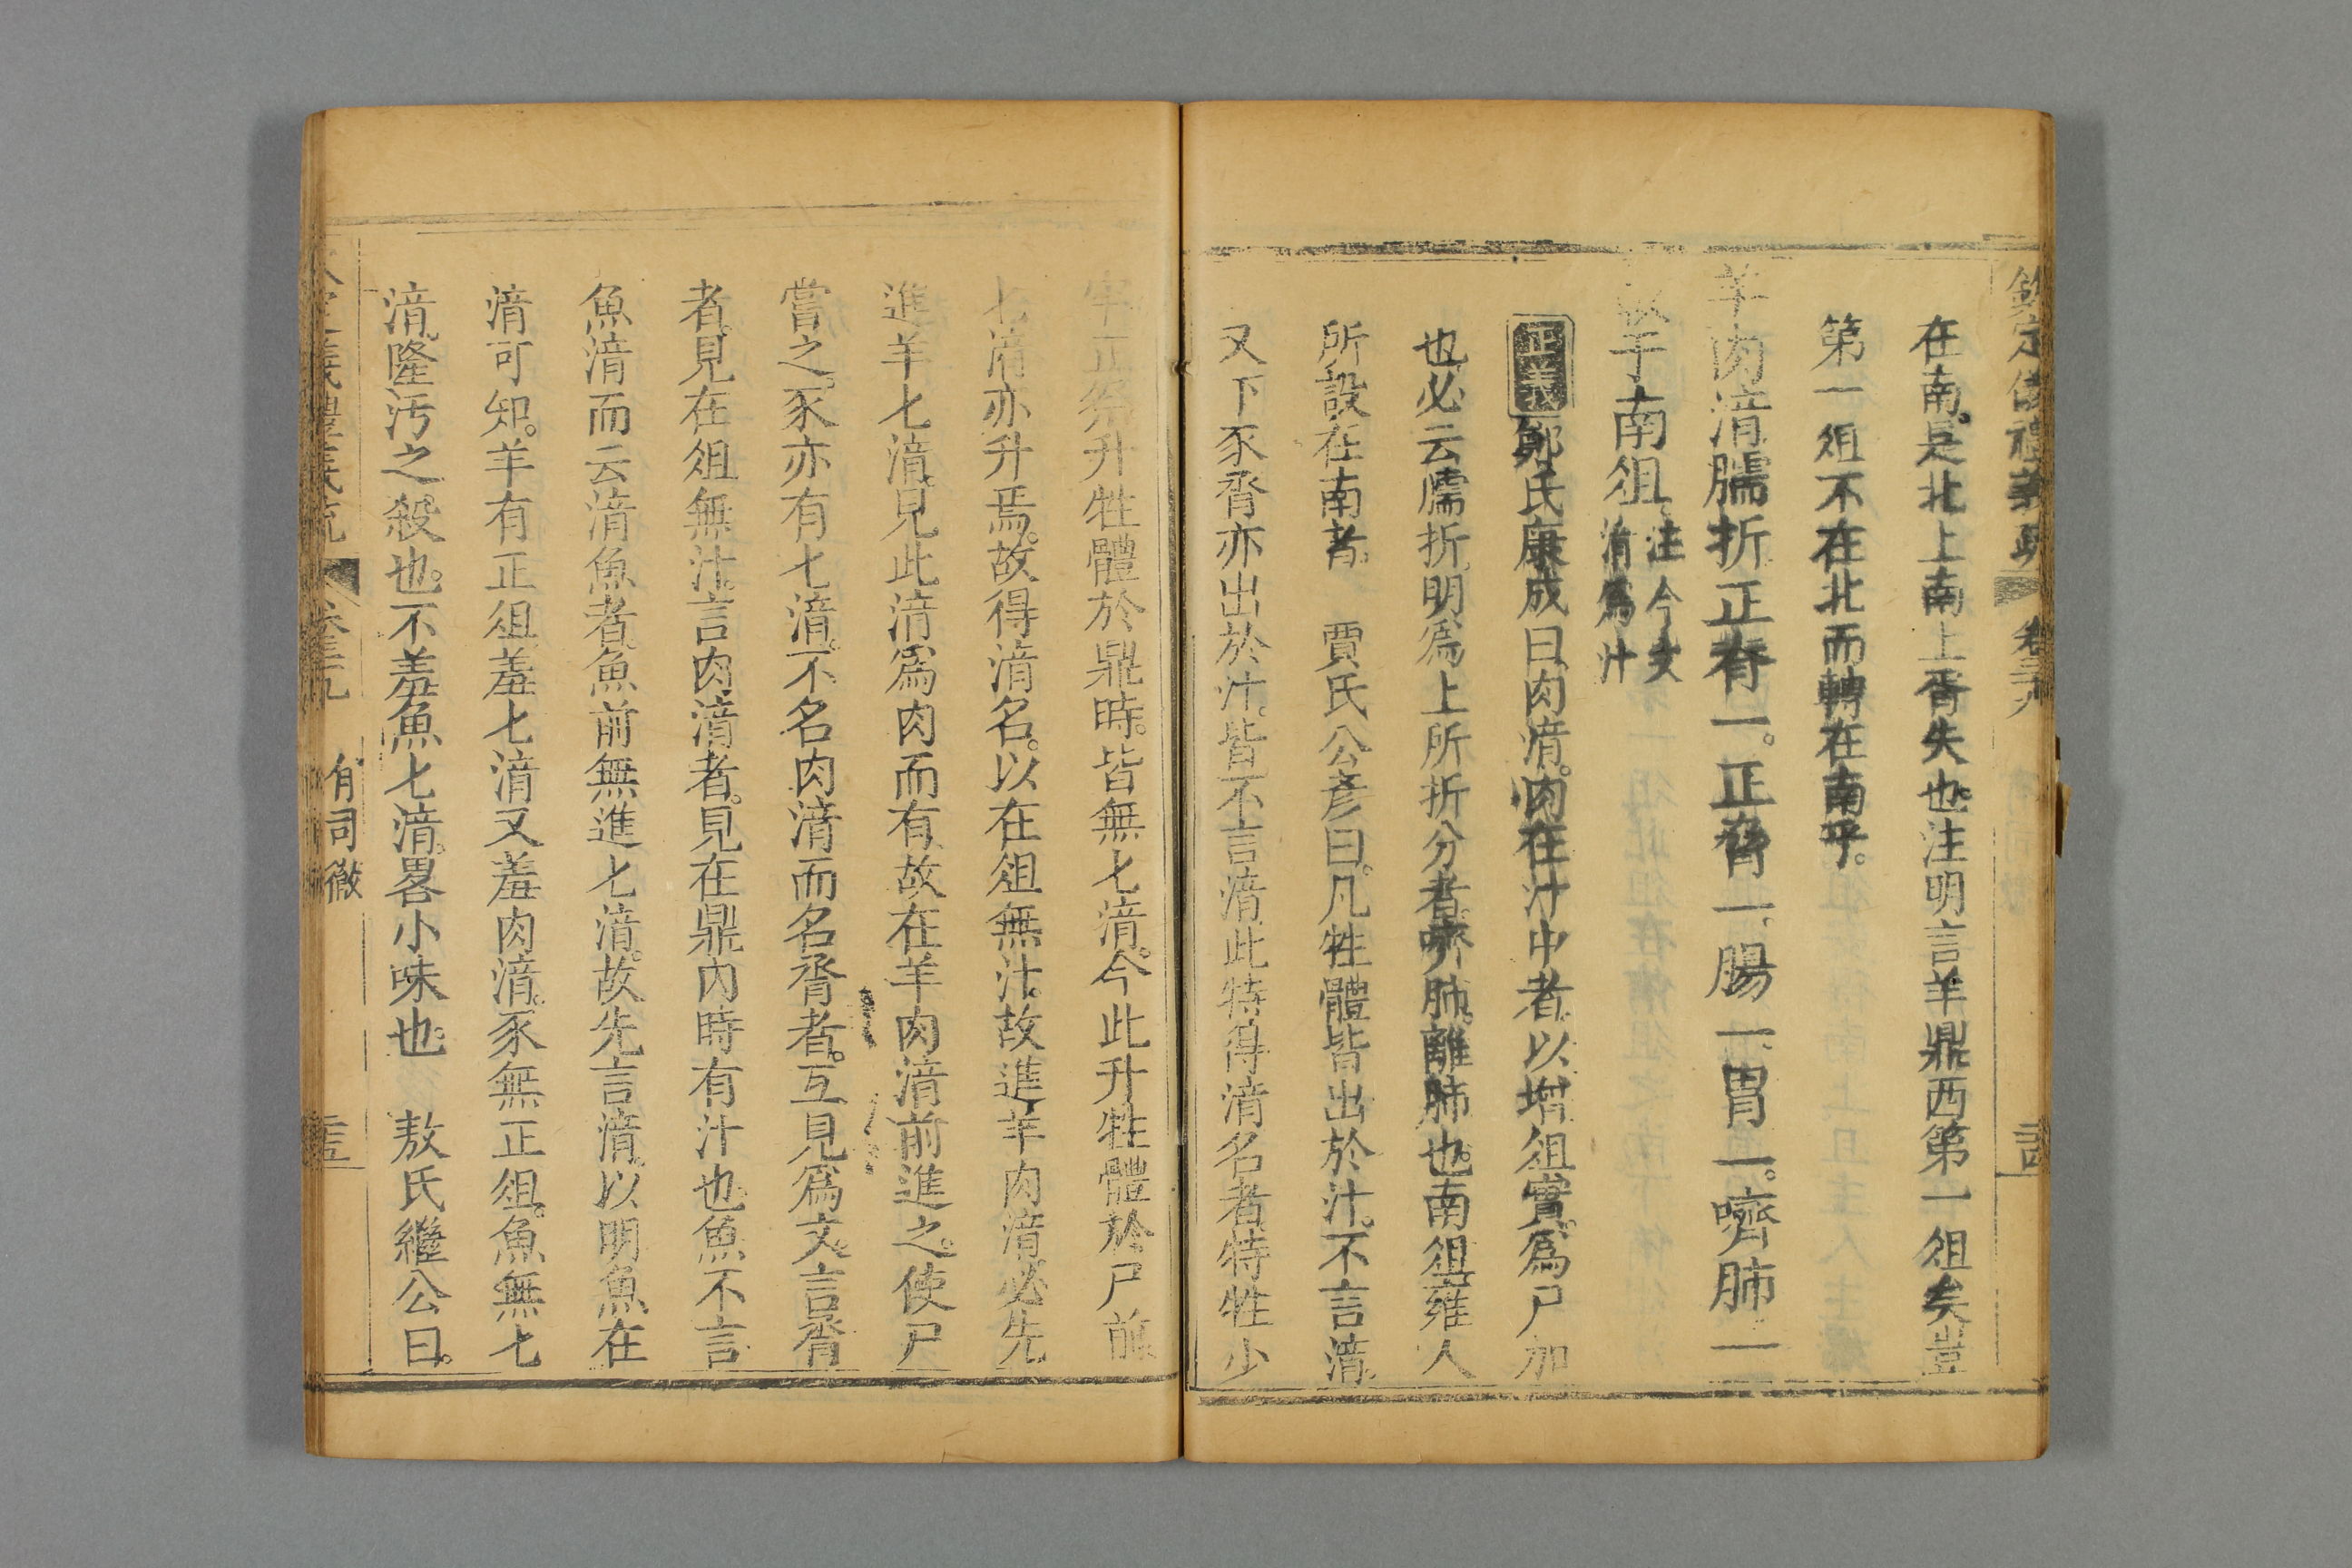 欽定儀禮義疏 卷三十九 二十四
在南。是北上南上胥失也。注明言羊鼎西第一俎矣豈
第一俎不在北而轉在南乎。
羊肉湆臑折正脊一。正脅一腸一胃一。嚌肺一
載于南俎注今文湆爲汁
正義鄭氏康成曰肉湆。肉在汁中者。以增俎實。爲尸加
也。必云臑折。明爲上所折分者。嚌肺。離肺也。南俎。雍人
所設在南者。 賈氏公彥曰。凡牲體皆出於汁。不言湆。
又下豕脀亦出於汁。皆不言湆。此特得湆名者。特牲少
牢正祭升牲體於鼎時。皆無匕湆。今此升牲體於尸前
匕湆亦升焉。故得湆名。以在俎無汁。故進羊肉湆必先
進羊匕湆。見此湆爲肉而有。故在羊肉湆前進之。使尸
嘗之。豕亦有匕湆。不名肉湆而名脀者。互見爲文。言脀
者。見在俎無汁。言肉湆者。見在鼎內時有汁也。魚不言
魚湆而云湆魚者。魚前無進匕湆。故先言湆。以明魚在
湆可知。羊有正俎羞匕湆又羞肉湆。豕無正俎。魚無匕
湆。隆汚之殺也。不羞魚匕湆。畧小味也。 敖氏繼公曰。
欽定儀禮義疏 卷三十九 有司徹 二十五